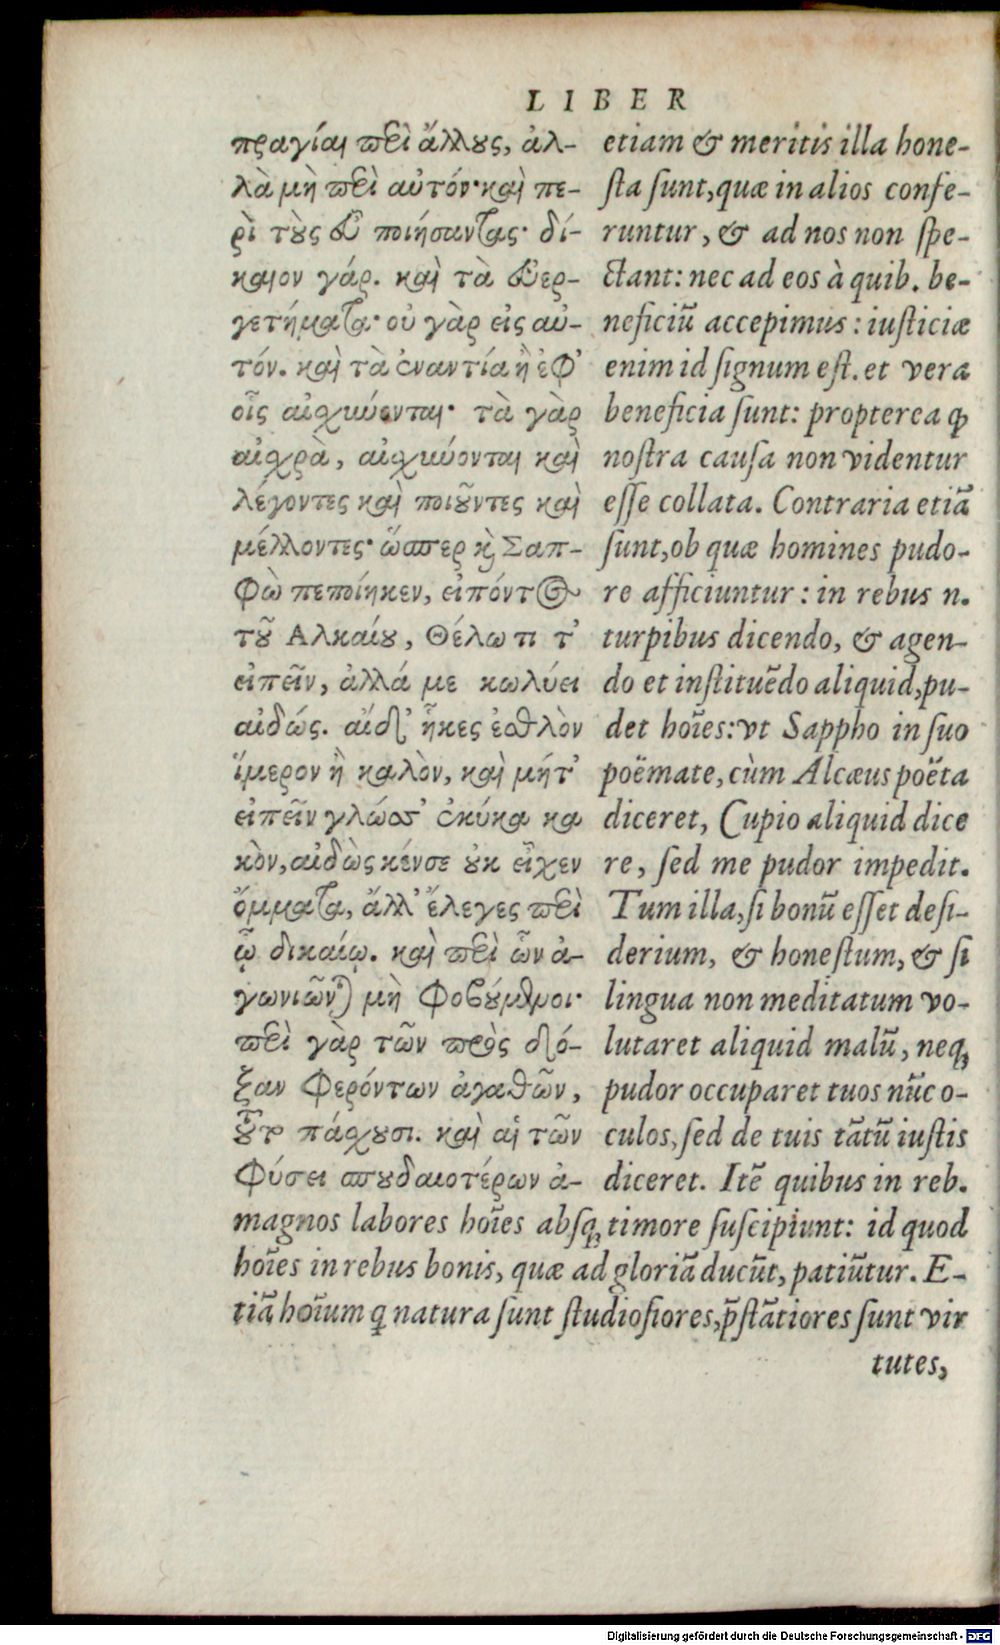 LIBER
πραγίαι περὶ ἄλλους, ἀλ-
λὰ μὴ περὶ αὐτόν· καὶ πε-
ρὶ τοὺς εὖ ποιήσαντας· δί-
καιον γάρ. καὶ τὰ εὐερ-
γετήματα· οὐ γὰρ εἰς αὑ-
τόν. καὶ τὰ ἐναντία ἢ ἐφ'
οἷς αἰσχύνονται· τὰ γὰρ
αἰσχρὰ, αἰσχύνονται καὶ
λέγοντες καὶ ποιοῦντες καὶ
μέλλοντες· ὥσπερ καὶ Σαπ-
φὼ πεποίηκεν, εἰπόντος
τοῦ Αλκαίου, Θέλω τι τ'
εἰπεῖν, ἀλλά με κωλύει
αἰδώς. αἴδ' ἧκες ἐσθλὸν
ἵμερον ἢ καλὸν, καὶ μήτ'
εἰπεῖν γλώσσ' ἐκύκα κα
κὸν, αἰδὼς κένσε οὐκ εἶχεν
ὄμματα, ἄλλ' ἔλεγες περὶ
ᾧ δικαίῳ. καὶ περὶ ὧν ἀ-
γωνιῶνται μὴ φοβούμενοι·
περὶ γὰρ τῶν πρὸς δό-
ξαν φερόντων ἀγαθῶν,
τοῦτο πάσχουσι. καὶ αἱ τῶν
φύσει σπουδαιοτέρων ἀ-
etiam & meritis illa hone-
sta sunt, quæ in alios confe-
runtur, & ad nos non spe-
ctant: nec ad eos à quib. be-
neficiū accepimus: iusticiæ
enim id signum est. et vera
beneficia sunt: propterea ꝙ
nostra causa non videntur
esse collata. Contraria etiā
sunt, ob quæ homines pudo-
re afficiuntur: in rebus n.
turpibus dicendo, & agen-
do et instituēdo aliquid, pu-
det hoīes: vt Sappho in suo
poëmate, cùm Alcæus poëta
diceret, Cupio aliquid dice
re, sed me pudor impedit.
Tum illa, si bonū esset desi-
derium, & honestum, & si
lingua non meditatum vo-
lutaret aliquid malū, neqꝫ
pudor occuparet tuos nūc o-
culos, sed de tuis tātū iustis
diceret. Itē quibus in reb.
magnos labores hoīes absqꝫ timore suscipiunt: id quod
hoīes in rebus bonis, quæ ad gloriā ducūt, patiūtur. E-
tiā hoīum q natura sunt studiosiores, p̄stātiores sunt vir
tutes,
Digitalisierung gefördert durch die Deutsche Forschungsgemeinschaft - DFG